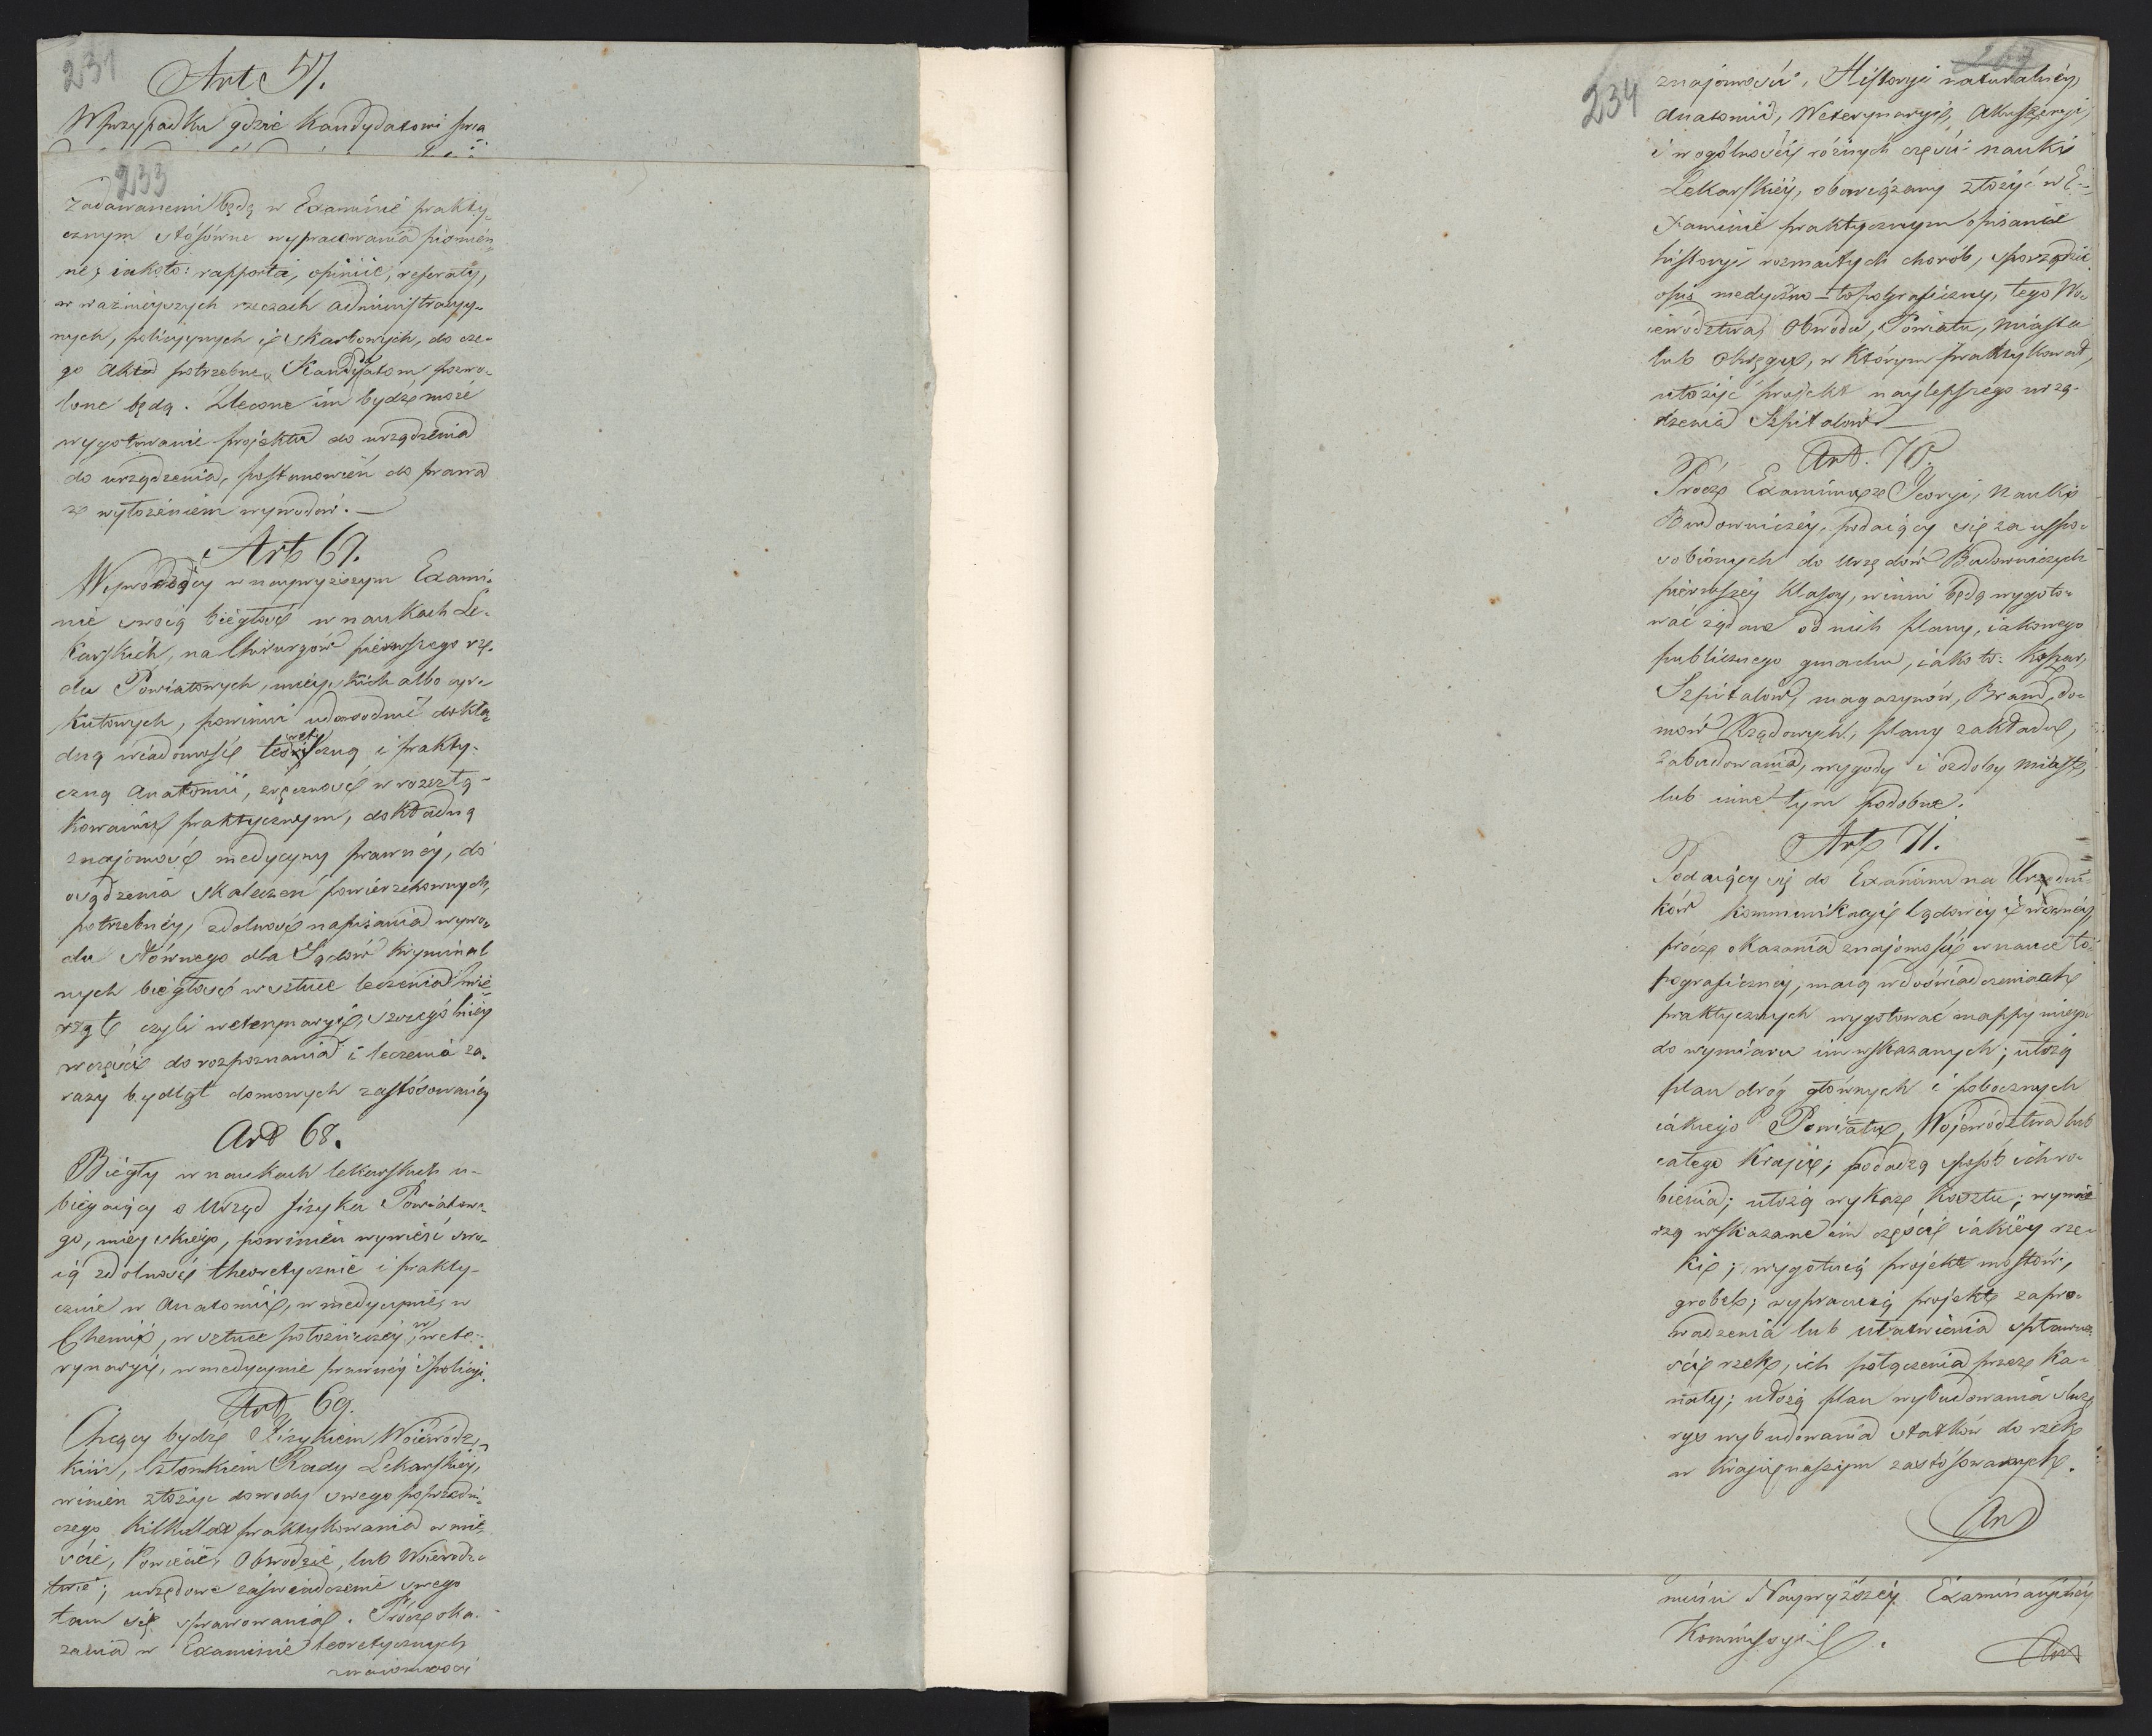 231
Art 57.
W przypadku gdzie Kandydatowi pra
233
zadawanemi będą w Examinie prakty-
cznym stósówne wypracowania piśmien-
ne, iako to: rapporta, opiniie, referaty,
w ważnieyszych rzeczach administracyy-
nych, policyynych i skarbowych, do cze-
go akta potrzebne Kandydatom pozwo-
lone będą. Zlecone im bydź może
wygotowanie projektu do urządzenia
do urządzenia, postanowień do prawa
z wyłożeniem wywodów. —
Art 67.
Wywodzący w naywyższym Exami-
nie swoią biegłość w naukach Le-
karskich, na Chirurgów pierwszego rzę-
du Powiatowych, mieyskich albo cyr-
kułowych, powinni udowodnić dokła-
dną wiadomość teoretyczną i prakty-
czną Anatomii, zręczność w rozczłą-
kowaniu praktycznym, dokładną
znajomość medycyny prawney, do
osądzenia skaleczeń powierzchownych,
potrzebney, zdolność napisania wywo-
du słównego dla Sądów kryminal
nych biegłość w sztuce leczenia zwie-
rząt czyli weterynaryi, szczególniey
w części do rozpoznania i leczenia za-
razy bydląt domowych zastósowaney
Art 68.
Biegły w naukach lekarskich u-
biegaiący o Urząd fizyka Powiatowe-
go, mieyskiego, powinien wywieść swo-
ią zdolność theoretycznie i prakty-
cznie w Anatomii, w medycynie, w
Chemii, w sztuce położniczey, w wete-
rynaryi, w medycynie prawney i policyi.
Art. 69.
Chcący bydź Fizykiem Woiewódz-
kim, Członkiem Rady Lekarskiey,
winien złożyć dowody swego poprzedni-
czego kilkulat praktykowania w mie-
ście, Powiecie, Obwodzie, lub Woiewódz-
twie; urzędowe zaświadczenie swego
tam się sprawowania. Prócz oka-
zania w Examinie teoretycznych
znaiomości
267
234
znajomości, Historyi naturalney,
Anatomii, Weterynaryi, Akuszeryi,
i w ogólności różnych części nauki
Lekarskiey, obowiązany złożyć w E-
xaminie praktycznym opisanie
historyi rozmaitych chorób, sporządzić
opis medyczno-topograficzny, tego Wo-
iewództwa, Obwodu, Powiatu, Miasta
lub Okręgu, w którym praktykował,
ułożyć projekt naylepszego urzą-
dzenia Szpitalów. —
Art. 70.
Prócz Examinu z Teoryi, Nauki
Budowniczey, podaiący się za uspo-
sobionych do Urzędów Budowniczych
pierwszey klassy, winni będą wygoto-
wać żądane od nich plany, iakowego
publicznego gmachu, iako to: Koszar,
Szpitalów, magazynów, Bram, do-
mów Rządowych, plany zakładu,
zabudowania, wygody i ozdoby miast,
lub inne tym podobne.
Art 71.
Podaiący się do Examinu na Urzędni-
ków kommunikacyi lądowey i wodney,
prócz okazania znajomości w nauce to-
pograficzney, maią w doświadczeniach
praktycznych wygotować mappy mieysc
do wymiaru im wskazanych; ułożą
plan dróg głównych i pobocznych
iakiego Powiatu, Województwa lub
całego Kraju; podadzą sposób ich ro-
bienia; ułożą wykaz kosztu; wymie-
rzą wskazane im części iakiey rze-
ki; wygotuią projekt mostów,
grobel; wypracuią projekt zapro-
wadzenia lub ułatwienia spławno-
ści rzek, ich połączenia przez ka-
nały; ułożą plan wybudowania śluz,
wybudowania statków do rzek
w kraju naszym zastósowanych.
Art
mieniu Naywyższey Examinacyyney
Kommissyi.
Art